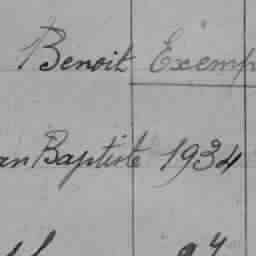 Benoit Exemp
an Baptiste 1934